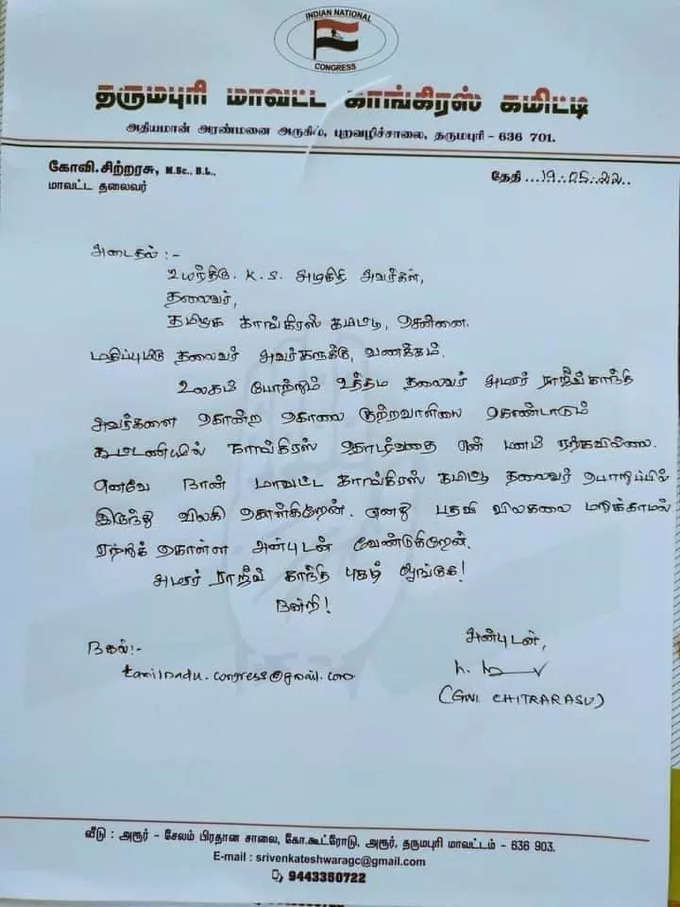 INDIAN NATIONAL
CONGRESS
தருமபுரி மாவட்ட காங்கிரஸ் கமிட்டி
அதியமான் அரண்மனை அருகில், புறவழிச்சாலை, தருமபுரி - 636 701.
கோவி.சிற்றரசு, M.Sc., B.L.,
மாவட்ட தலைவர்
தேதி ...19..05..22..
அடைதல் :-
உயர்திரு. K. S. அழகிரி அவர்கள்,
தலைவர்,
தமிழக காங்கிரஸ் கமிட்டி, சென்னை.
மதிப்புமிகு தலைவர் அவர்களுக்கு, வணக்கம்.
உலகம் போற்றும் உத்தம தலைவர் அமரர் ராஜீவ்காந்தி
அவர்களை கொன்ற கொலை குற்றவாளியை கொண்டாடும்
கூட்டணியில் காங்கிரஸ் தொடர்வதை என் மனம் ஏற்கவில்லை.
எனவே நான் மாவட்ட காங்கிரஸ் கமிட்டி தலைவர் பொறுப்பில்
இருந்து விலகி கொள்கிறேன். எனது பதவி விலகலை மறுக்காமல்
ஏற்றுக் கொள்ள அன்புடன் வேண்டுகிறேன்.
அமரர் ராஜீவ் காந்தி புகழ் ஓங்குக!
நன்றி!
அன்புடன்,
நகல்:-
tamilnadu.congress@gmail.com
(GOVI CHITRARASU)
வீடு : அரூர் - சேலம் பிரதான சாலை, கோ.கூட்ரோடு, அரூர், தருமபுரி மாவட்டம் - 636 903.
E-mail : srivenkateshwaragc@gmail.com
9443350722